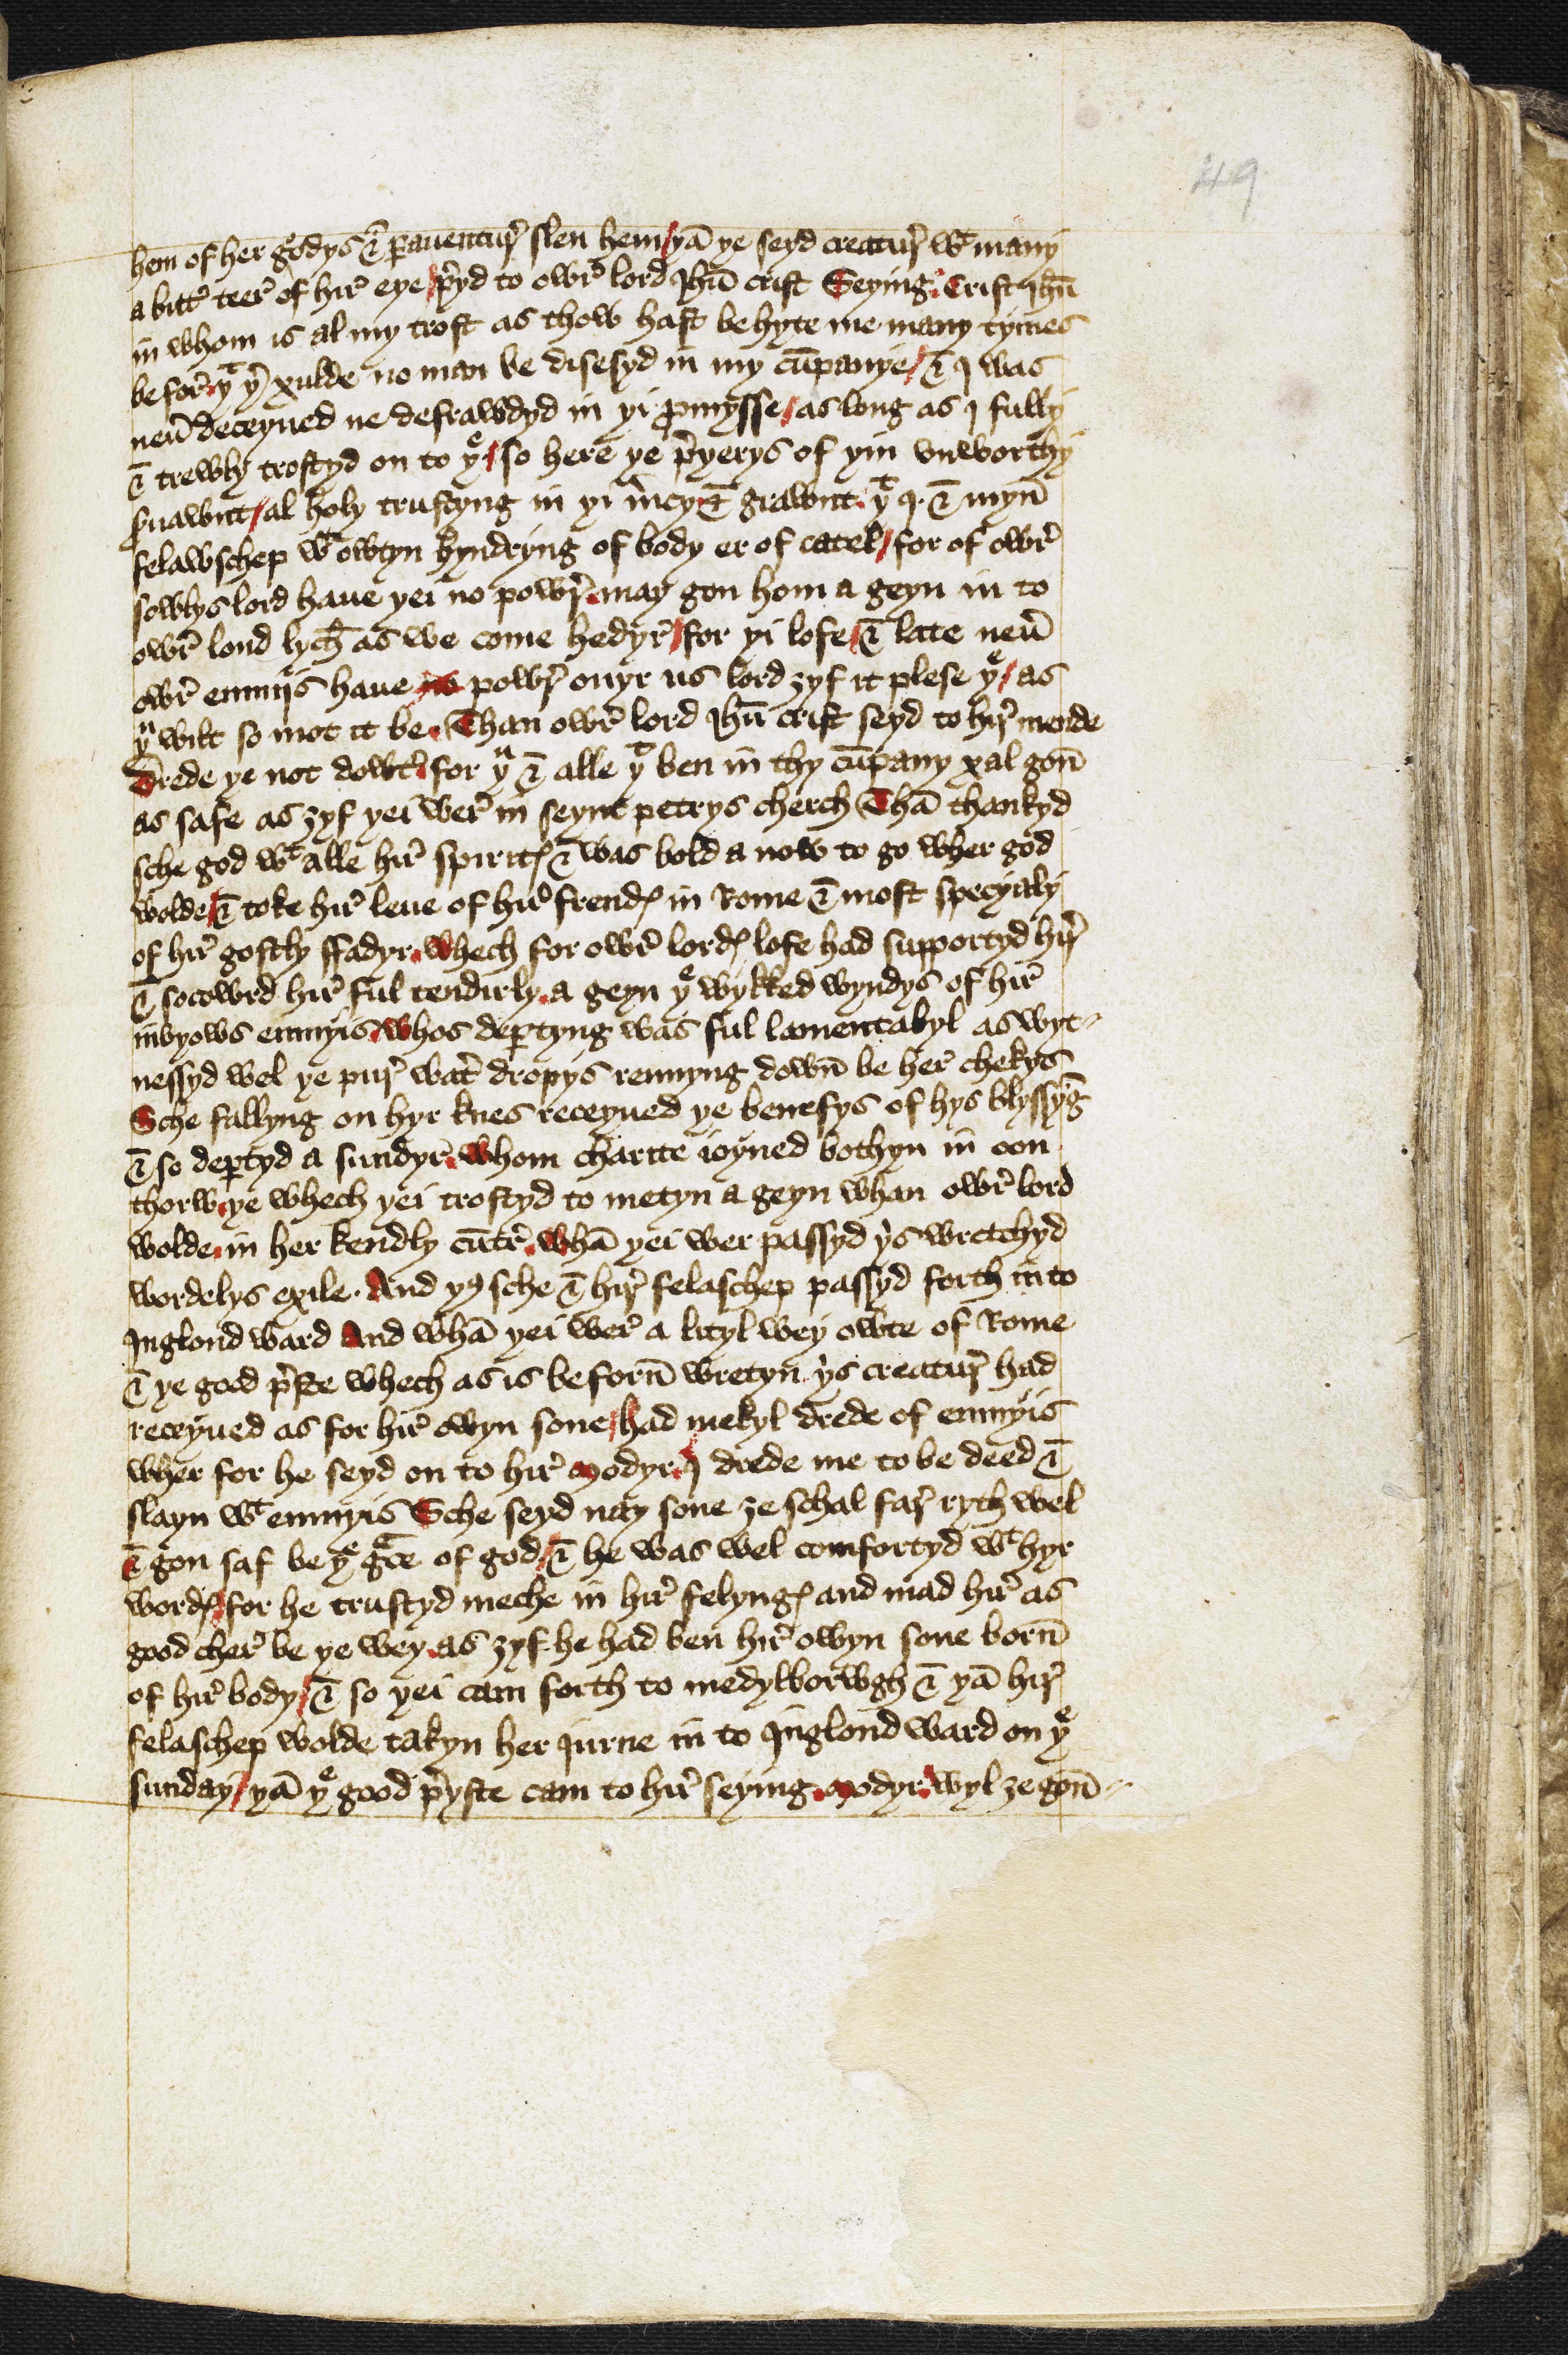 49
hem of her godys & ꝑauentur̛ slen hem / yā ye seyd creatur̛ wᵗ many
a bitt̛ teer̛ of hir̛ eye / p̛yd to owr̛ lord Jhū crist Seying. Crist Jhū
in whom is al my trost as thow hast behyte me many tymes
befor̛ yᵗ y̛ xulde no man be disesyd in my cūpanye / & J was
neư deceyued ne defrawdyd in yi ꝓmysse / as long as J fully
& trewly trostyd on to yᵉ / so here ye p̛yerys of yin vnworthy
s̛uawnt / al holy trustyng in yi m̛cy & grawnt. yᵗ J. & myn̄
felawschep wᵗ owtyn hyndryng of body er of catel / for of owr̛
sowlys lord haue yei no powr̛. may gon hom a geyn in to
owr̛ lond lych as we come hedyr̛ / for yi lofe / & late neư
owr̛ enmijs haue no powr̛ ouyr us lord ȝyf it plese yᵉ / as
yᵘ wilt so mot it be. Than owr̛ lord Jhū crist seyd to hir̛ mende
Drede ye not dowt̛. for yᵘ & alle yᵗ ben in thy cūpany xal gon̄
as safe as ȝyf yei wer̛ in seynt petrys cherch Thā thankyd
sche god wᵗ alle hir̛ spiritꝭ & was bold a now to go wher god
wolde / & toke hir̛ leue of hir̛ frendꝭ in Rome & most specyaly
of hir̛ gostly ffadyr. whech for owr̛ lordꝭ lofe had supportyd hir̛
& socowrd hir̛ ful tendirly. a geyn yᵉ wykked wyndys of hir̛
invyows enmyis. whos deꝑtyng was ful lamentabyl as wyt=
nessyd wel ye pur̛ wat̛ dropys rennyng down̄ be her̛ chekys
Sche fallyng on hyr knes receyued ye benefys of hys blyssyḡ
& so deꝑtyd a sundyr̛. whom charite ioyned bothyn in oon
thorw ye whech yei trostyd to metyn a geyn whan owr̛ lord
wolde. in her kendly cūtr̛. whā yei wer passyd yˢ wretchyd
wordelys exile. And yꝰ sche & hir̛ felaschep passyd forth in to
Jnglond ward And whā yei wer̛ a lityl wey owte of Rome
& ye good p̛ste whech as is beforn̄ wretyn yˢ creatur̛ had
receyued as for hir̛ owyn sone / had mekyl drede of enmyis
wher for he seyd on to hir̛ modyr. J drede me to be deed &
slayn wᵗ enmyis Sche seyd nay sone ȝe schal far̛ ryth wel
& gon saf be yᵉ gᵃce of god / & he was wel comfortyd wᵗ hyr
wordꝭ / for he trustyd meche in hir̛ felyngꝭ and mad hir̛ as
good cher̛ be ye wey. as ȝyf he had ben hir̛ owyn sone born̄
of hir̛ body / & so yei cam forth to medylborwgh & yā hir̛
felaschep wolde takyn her jurne in to Jnglond ward on yᵉ
sunday / yā yᵉ good p̛yste cam to hir̛ seying. modyr. wyl ȝe gon̄